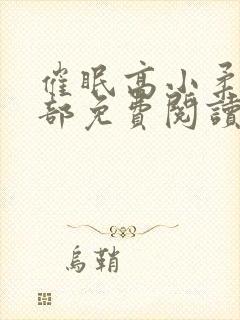 催眠高小柔
部免費閱讀
烏鞘